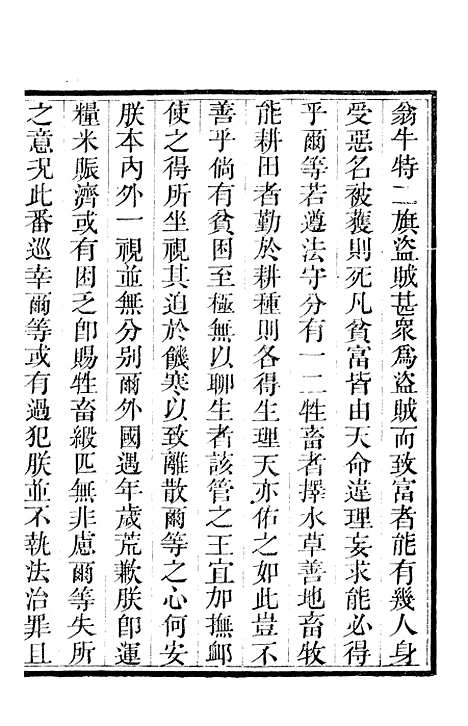 翁牛特二旗盜賊甚衆爲盜賊而致富者能有幾人身
受惡名被獲則死凡貧富皆由天命違理妄求能必得
乎爾等若遵法守分有一二牲畜者擇水草善地畜牧
能耕田者勤於耕種則各得生理天亦佑之如此豈不
善乎倘有貧困至極無以聊生者該管之王宜加撫䘏
使之得所坐視其迫於饑寒以致離散爾等之心何安
朕本內外一視並無分别爾外國遇年歲荒歉朕卽運
糧米賑濟或有困乏卽賜牲畜緞匹無非慮爾等失所
之意況此番巡幸爾等或有過犯朕並不執法治罪且